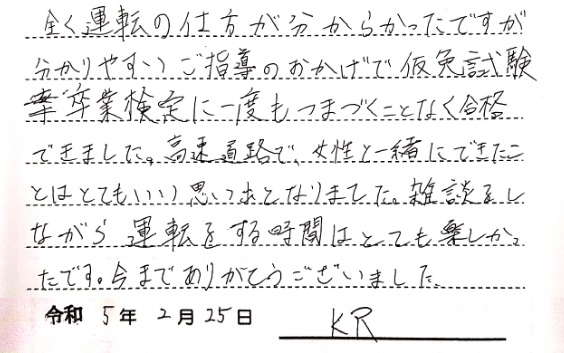 全く運転の仕方が分からかったですが
分かりやすいご指導のおかげで仮免試験
卒業検定に一度もつまづくことなく合格
できました。高速道路で、女性と一緒にできたこ
とはとてもいいい思いつあとなりました。雑談をし
ながら運転をする時間はとても楽しかっ
たです。今までありがとうございました。
令和 5年 2月 25日 KR